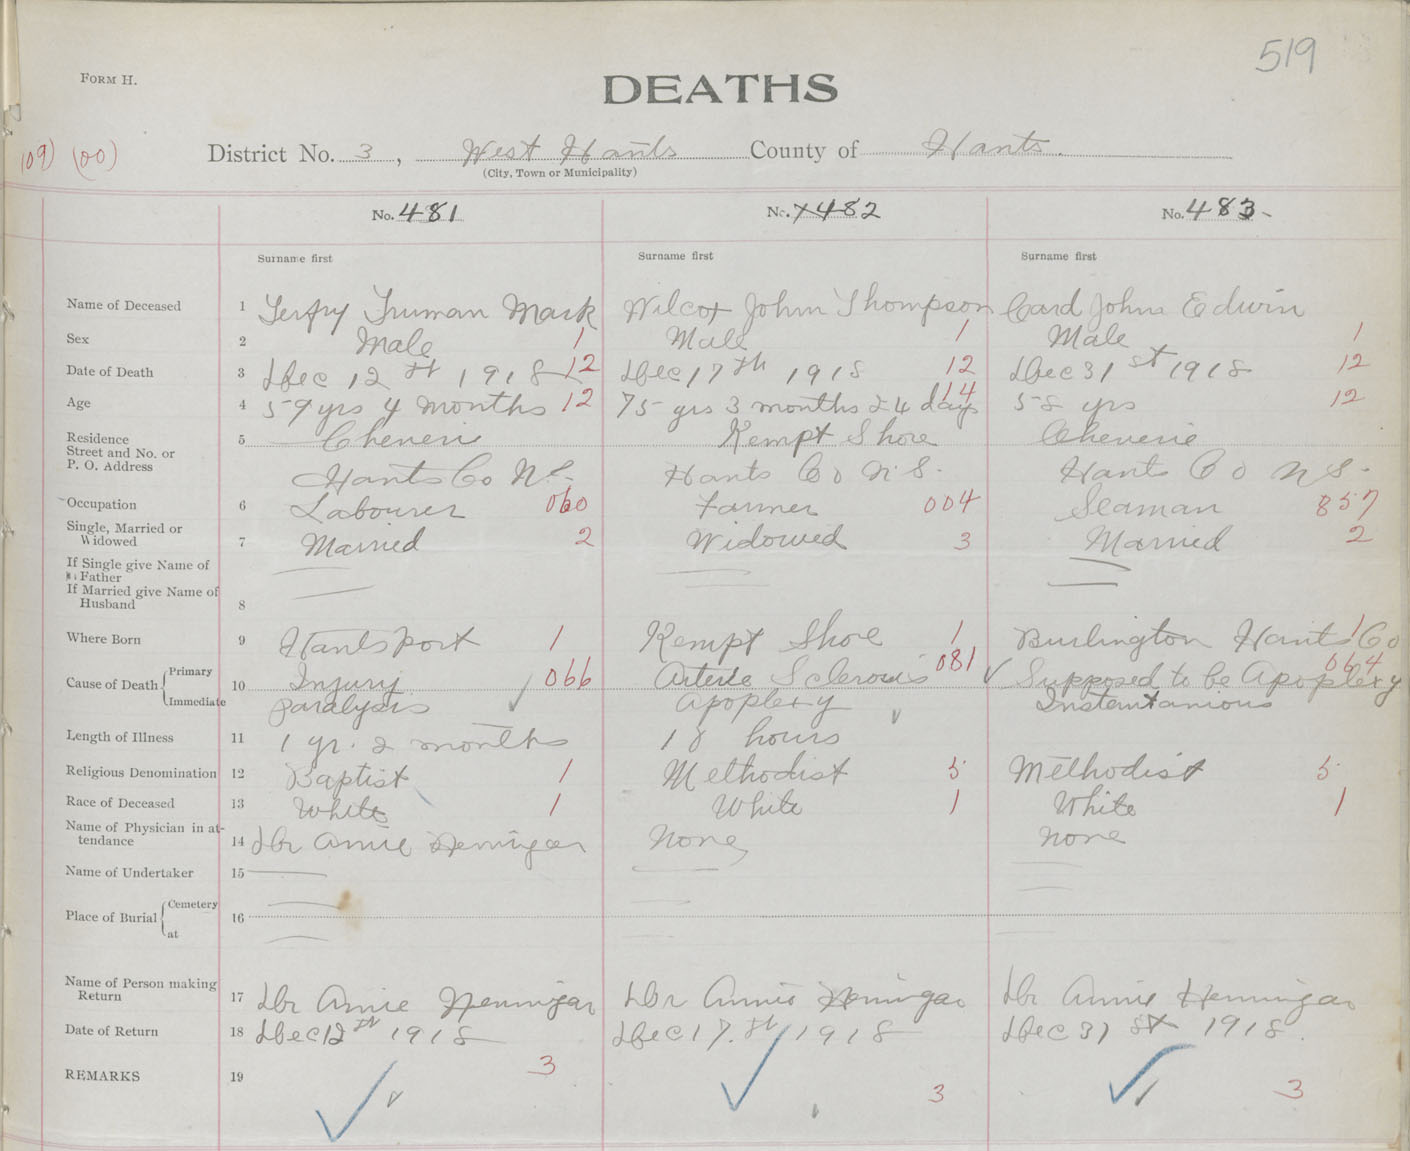 519
FORM H.
DEATHS
(09) (00)
District No. 3, West Hants County of Hants.
(City, Town or Municipality)
No. 481 No. 482 No. 483
Surname first Surname first Surname first
Name of Deceased 1 Terfry Truman Mark Wilcox John Thompson Card John Edwin
Sex 2 Male 1 Male 1 Male 1
Date of Death 3 Dec 12th 1918 12 Dec 17th 1918 12 Dec 31st 1918 12
Age 4 59 yrs 4 months 12 75 yrs 3 months 24 days 14 58 yrs 12
Residence 5 Cheverie Kempt Shore Cheverie
Street and No. or
P. O. Address Hants Co N.S. Hants Co N.S. Hants Co N S.
Occupation 6 Labourer 060 Farmer 004 Seaman 857
Single, Married or
Widowed 7 Married 2 Widowed 3 Married 2
If Single give Name of
Father
If Married give Name of
Husband 8
Where Born 9 Hantsport 1 Kempt Shore 1 Burlington Hants Co 1
Cause of Death Primary 10 Injury 066 Arterie Sclerosis 081 Supposed to be Apoplexy 064
Immediate paralysis Apoplexy Instantanious
Length of Illness 11 1 yr. 2 months 18 hours
Religious Denomination 12 Baptist 1 Methodist 5 Methodist 5
Race of Deceased 13 White 1 White 1 White 1
Name of Physician in at-
tendance 14 Dr Annie Hennigar None none
Name of Undertaker 15
Place of Burial Cemetery 16
at
Name of Person making
Return 17 Dr Annie Hennigar Dr Annie Hennigar Dr Annie Hennigar
Date of Return 18 Dec 12th 1918 Dec 17th 1918 Dec 31st 1918.
REMARKS 19 3 3 3